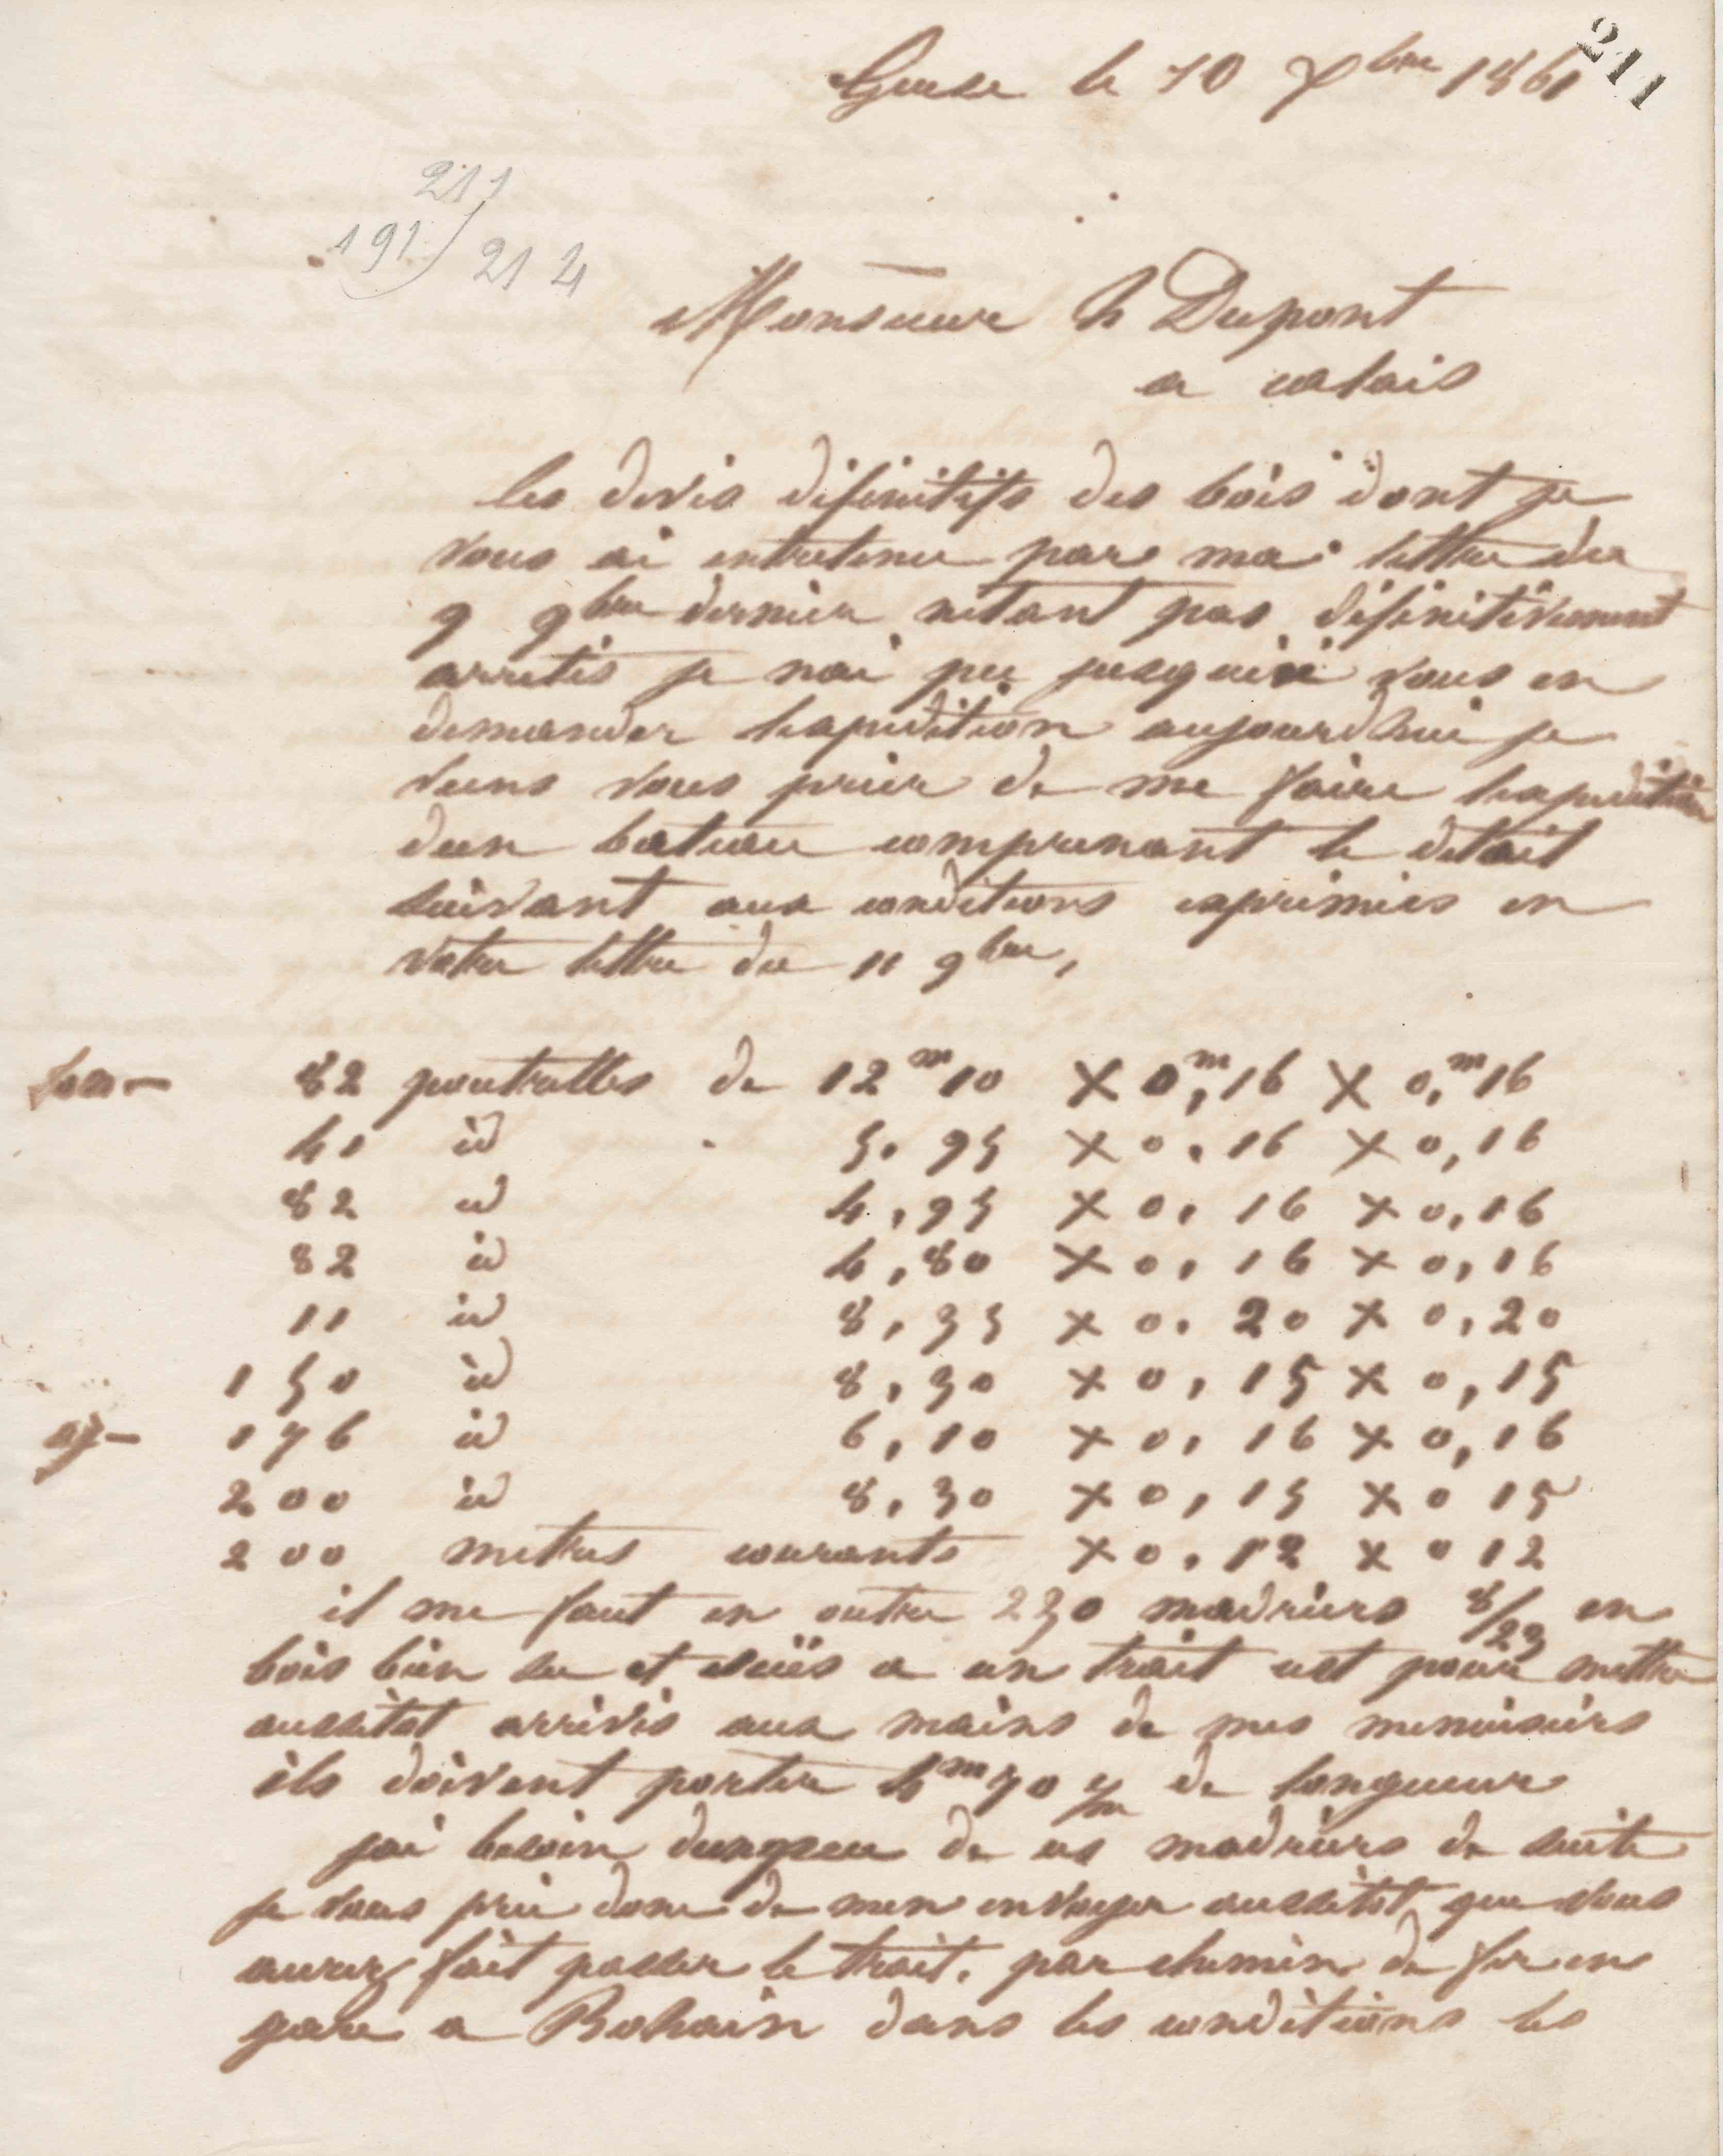 211
Guise le 10 Xbre 1861
211
191/214
Monsieur h Dupont
a calais
les devis définitifs des bois dont je
vous ai entretenu par ma lettre du
9 9bre dernier netant pas définitivement
arretés je nai pu jusquici vous en
demander lexpedition aujourdhui je
viens vous prier de me faire lexpedition
dun bateau comprenant le detail
suivant aux conditions exprimées en
votre lettre du 11 9bre,
82 poutrelles de 12m10 × 0m,16 × 0,m16
41 id 5.95 × 0,16 × 0,16
82 id 4,95 × 0,16 × 0,16
82 id 4,80 × 0,16 × 0,16
11 id 8,35 × 0.20 × 0,20
150 id 8,30 × 0,15 × 0,15
176 id 6,10 × 0,16 × 0,16
200 id 8,30 × 0,15 × 0 15
200 metres courants × 0,12 × 0 12
il me faut en outre 230 madriers 8/23 en
bois bien sec et sciés a un trait cest pour mettre
aussitot arrivés aux mains de mes menuisiers
ils doivent porter 4m70 de longueur
jai besoin dun peu de ces madriers de suite
je vous prie donc de men envoyer aussitot que vous
aurez fait passer le trait, par chemin de fer en
gare a Bohain dans les conditions les